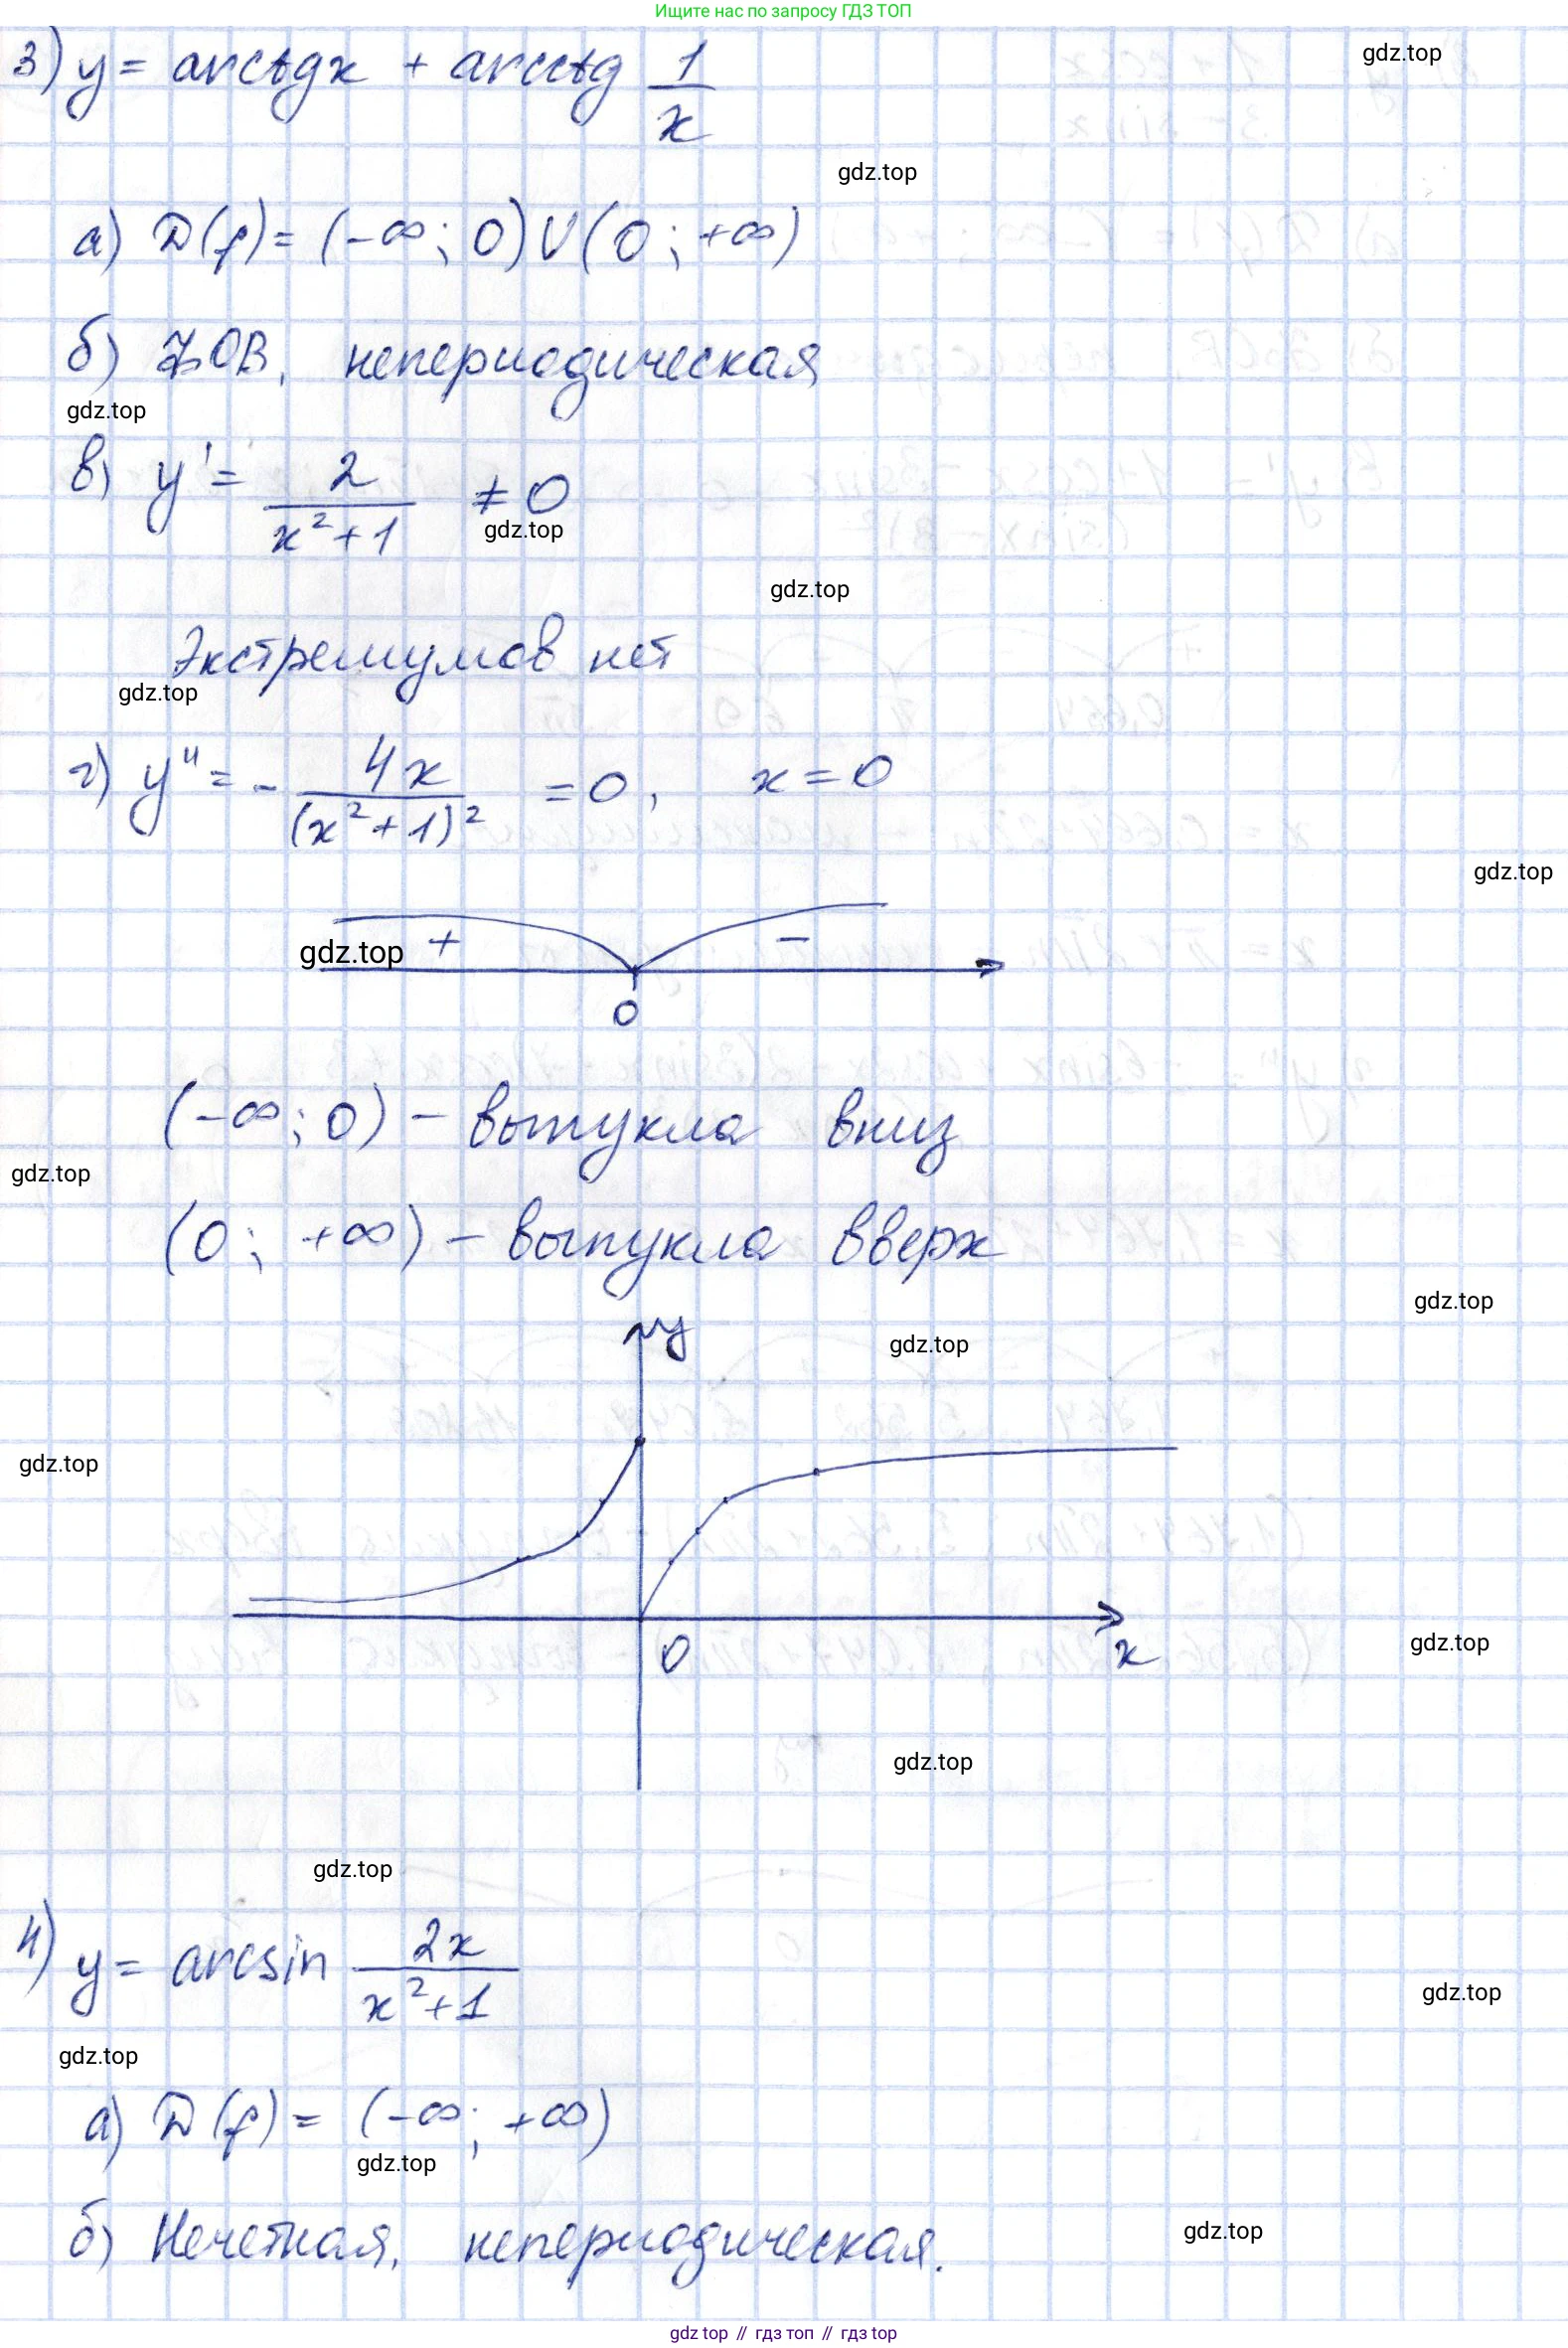 Ищите нас по запросу ГДЗ ТОП
3) y = arctgx + arcctg 1/x
gdz.top
gdz.top
а) D(f) = (-∞; 0) U (0; +∞)
б) ФОВ, непериодическая
gdz.top
в) y' = 2/(x²+1) ≠ 0
gdz.top
gdz.top
Экстремумов нет
gdz.top
г) y'' = - 4x/(x²+1)² = 0, x = 0
gdz.top
gdz.top + -
0
(-∞; 0) - выпукла вниз
gdz.top
(0; +∞) - выпукла вверх
gdz.top
y
gdz.top
gdz.top
0 x
gdz.top
gdz.top
gdz.top
4) y = arcsin 2x/(x²+1)
gdz.top
gdz.top
а) D(f) = (-∞; +∞)
gdz.top
б) Нечетная, непериодическая.
gdz.top
gdz top // гдз топ // гдз top